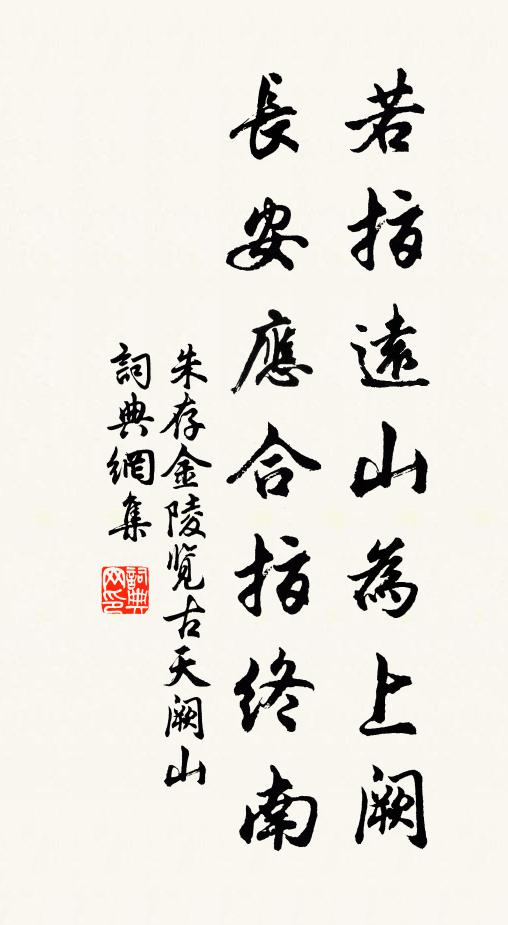 若指遠山為上闕
長安應合指終南
朱存金陵览古天阙山
詞典網集
詞典網印